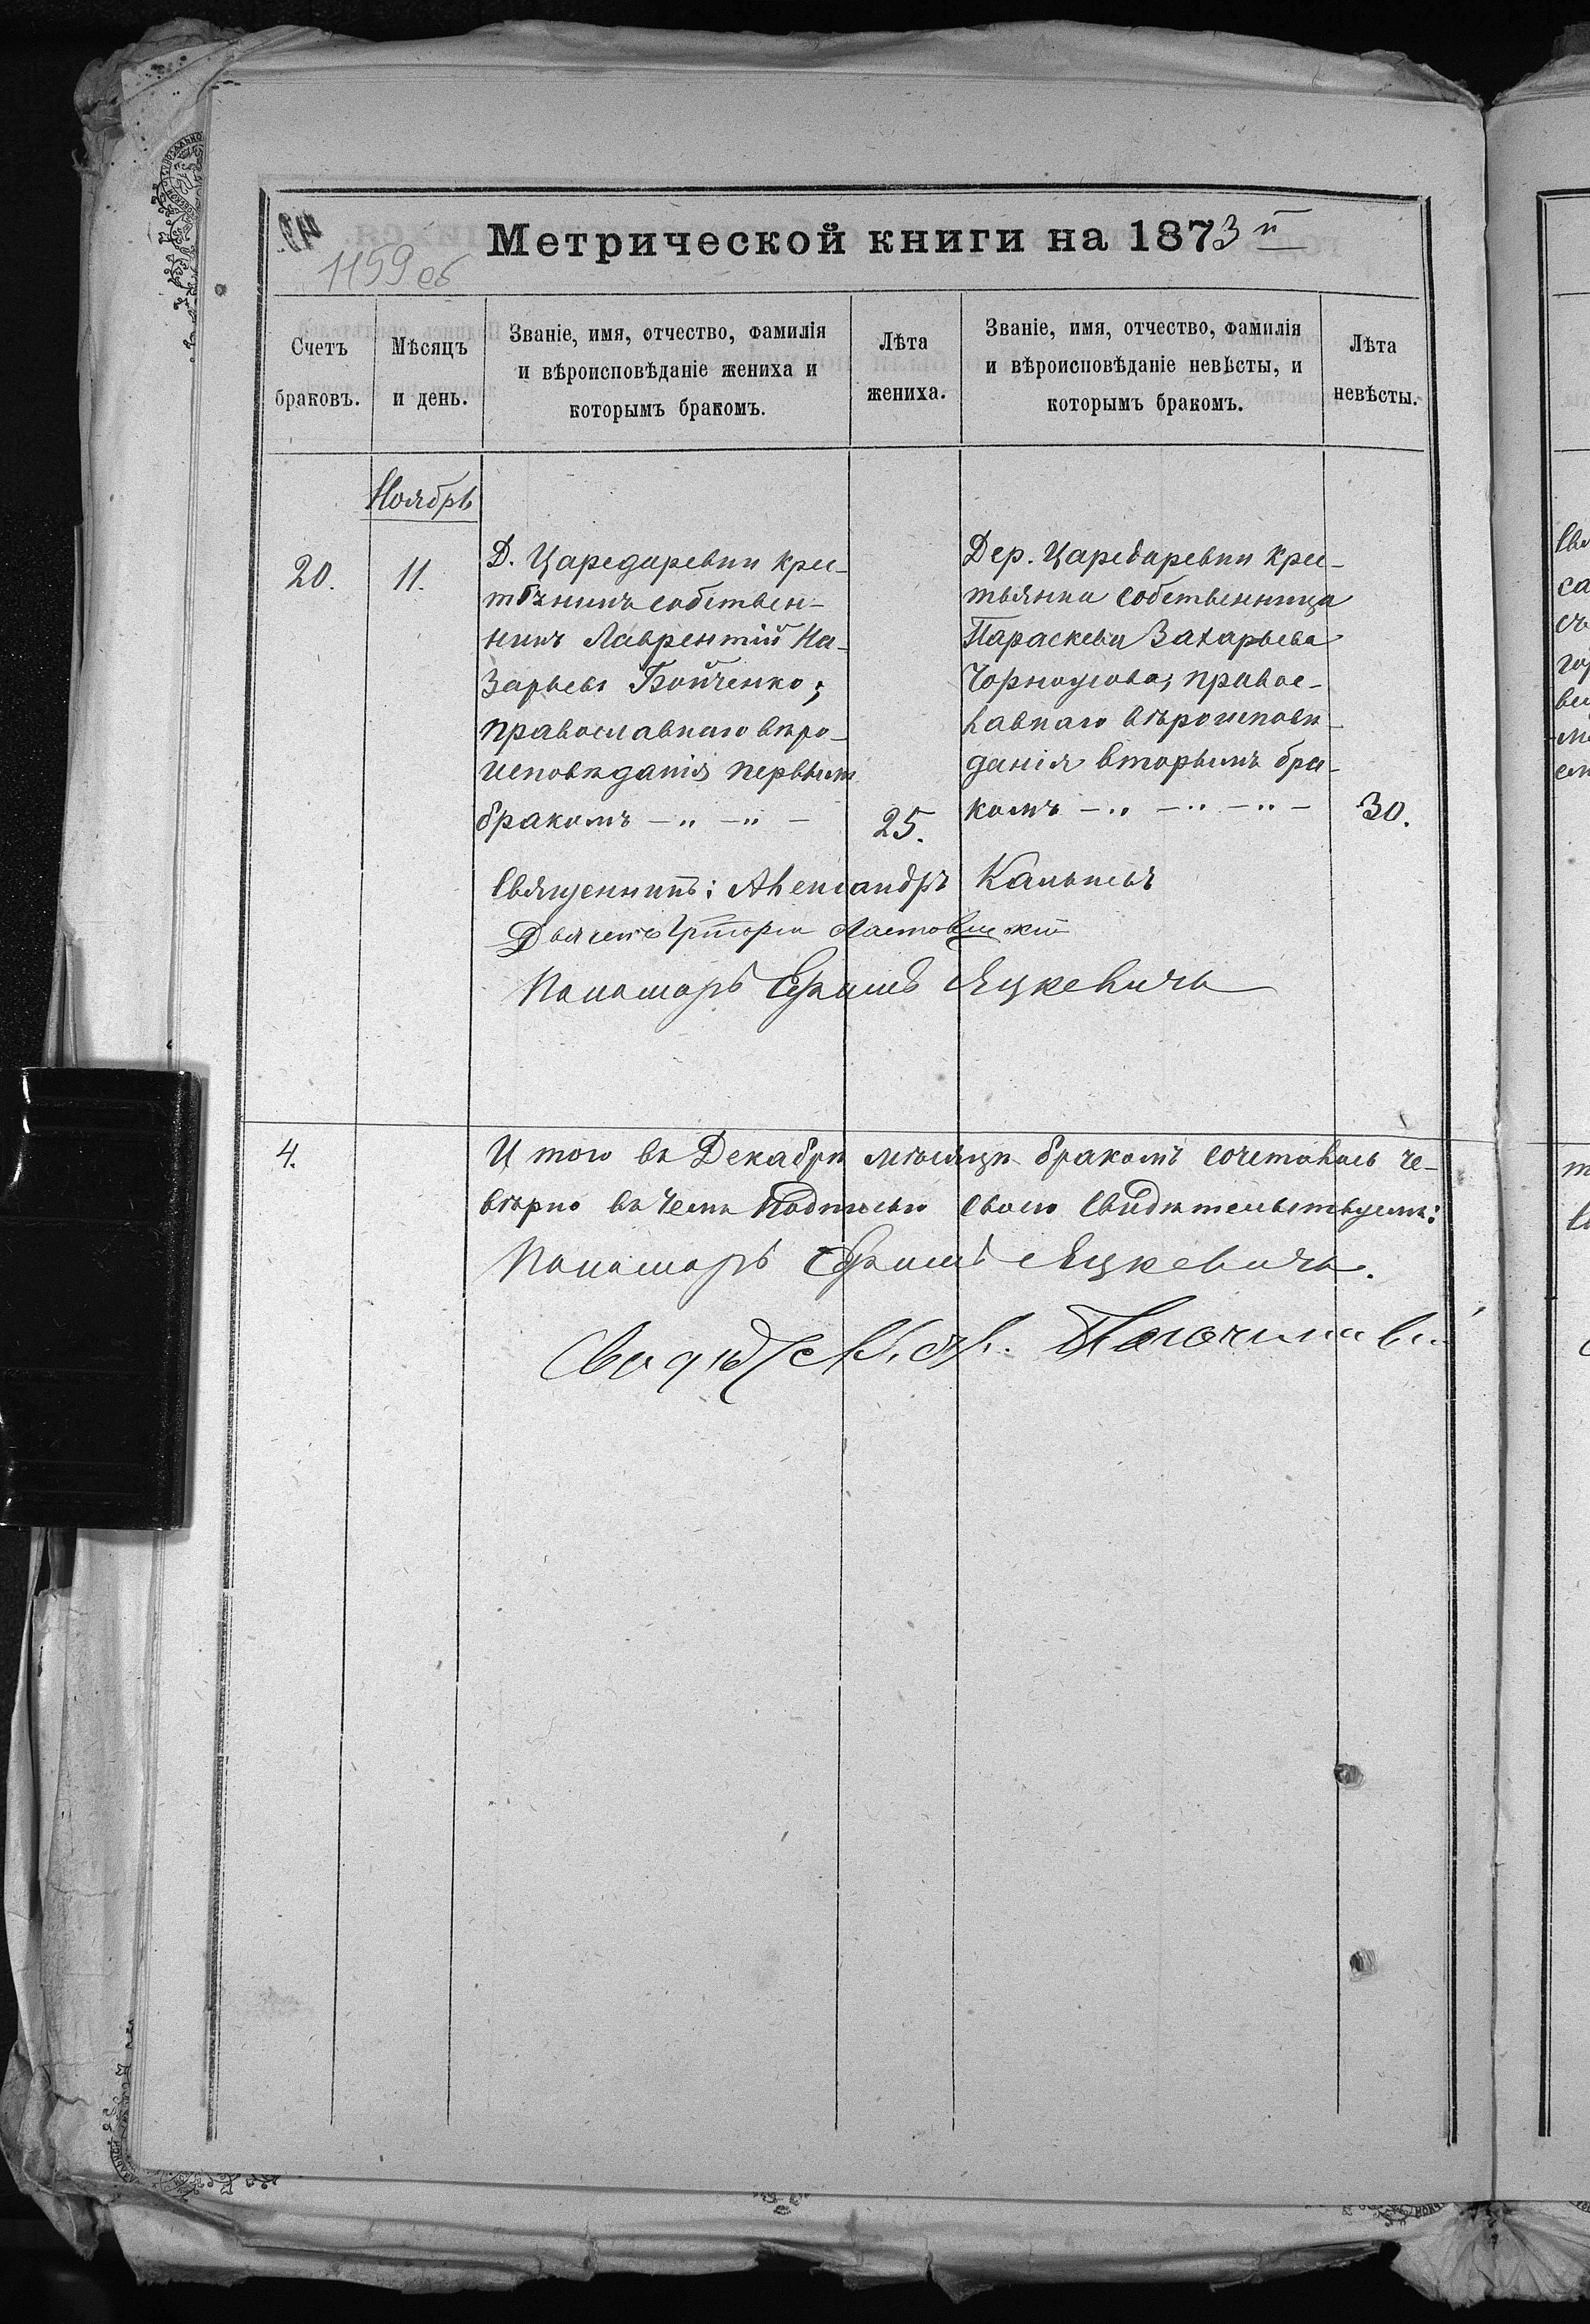 Метрической книги на 1873 й
1159 об
Счетъ браковъ.
Мѣсяцъ и день.
Званіе, имя, отчество, фамилія
и вѣроисповѣданіе жениха и
которымъ бракомъ.
Лѣта
жениха.
Званіе, имя, отчество, фамилія
и вѣроисповѣданіе невѣсты, и
которымъ бракомъ.
Лѣта
невѣсты.
Ноябрь
20.
11.
Д. Царедаревки крес-
тьянинъ собствен-
никъ Лаврентій На-
зарьевъ Бойченко;
православнаго вѣро-
исповѣданія первымъ
бракомъ — „ — „ —
25.
Дер. Царедаревки крес-
тьянка собственница
Параскева Захарьева
Чорноусова, правос-
лавнаго вѣроисповѣ-
данія вторымъ бра-
комъ — „ — „ — „ —
30.
Священникъ: Александръ
Дьячекъ Григорій Ластовицкій
Пономарь Ефимъ Яцкевичъ
4.
И того въ Декабрѣ мѣсяцѣ бракомъ сочеталось че-
вѣрно въ чемъ Подписью своею свидѣтельствуемъ:
Пономарь Ефимъ Яцкевичъ.